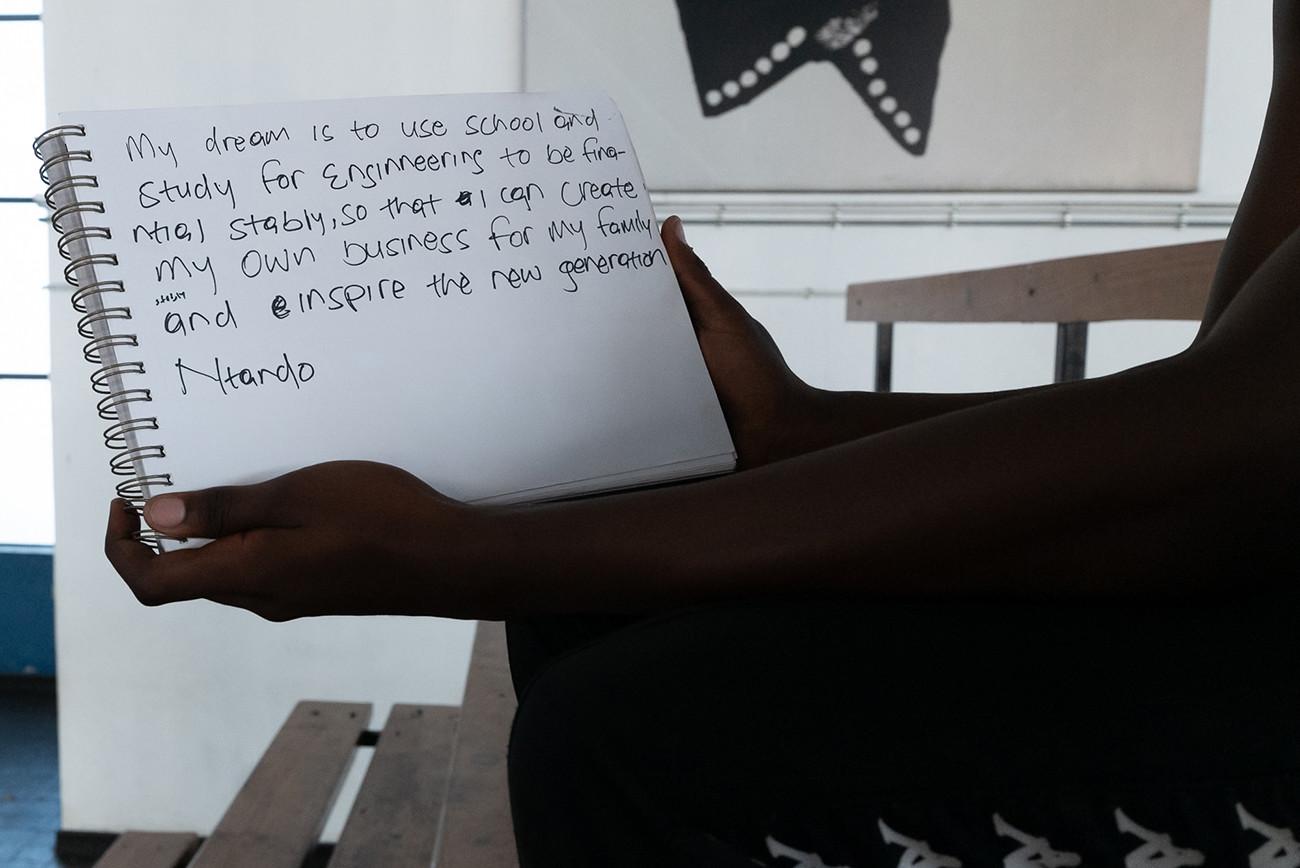 My dream is to use school and
study for Enginneering to be fina-
ntial stably, so that I can create
my own business for my family
and inspire the new generation
Ntando